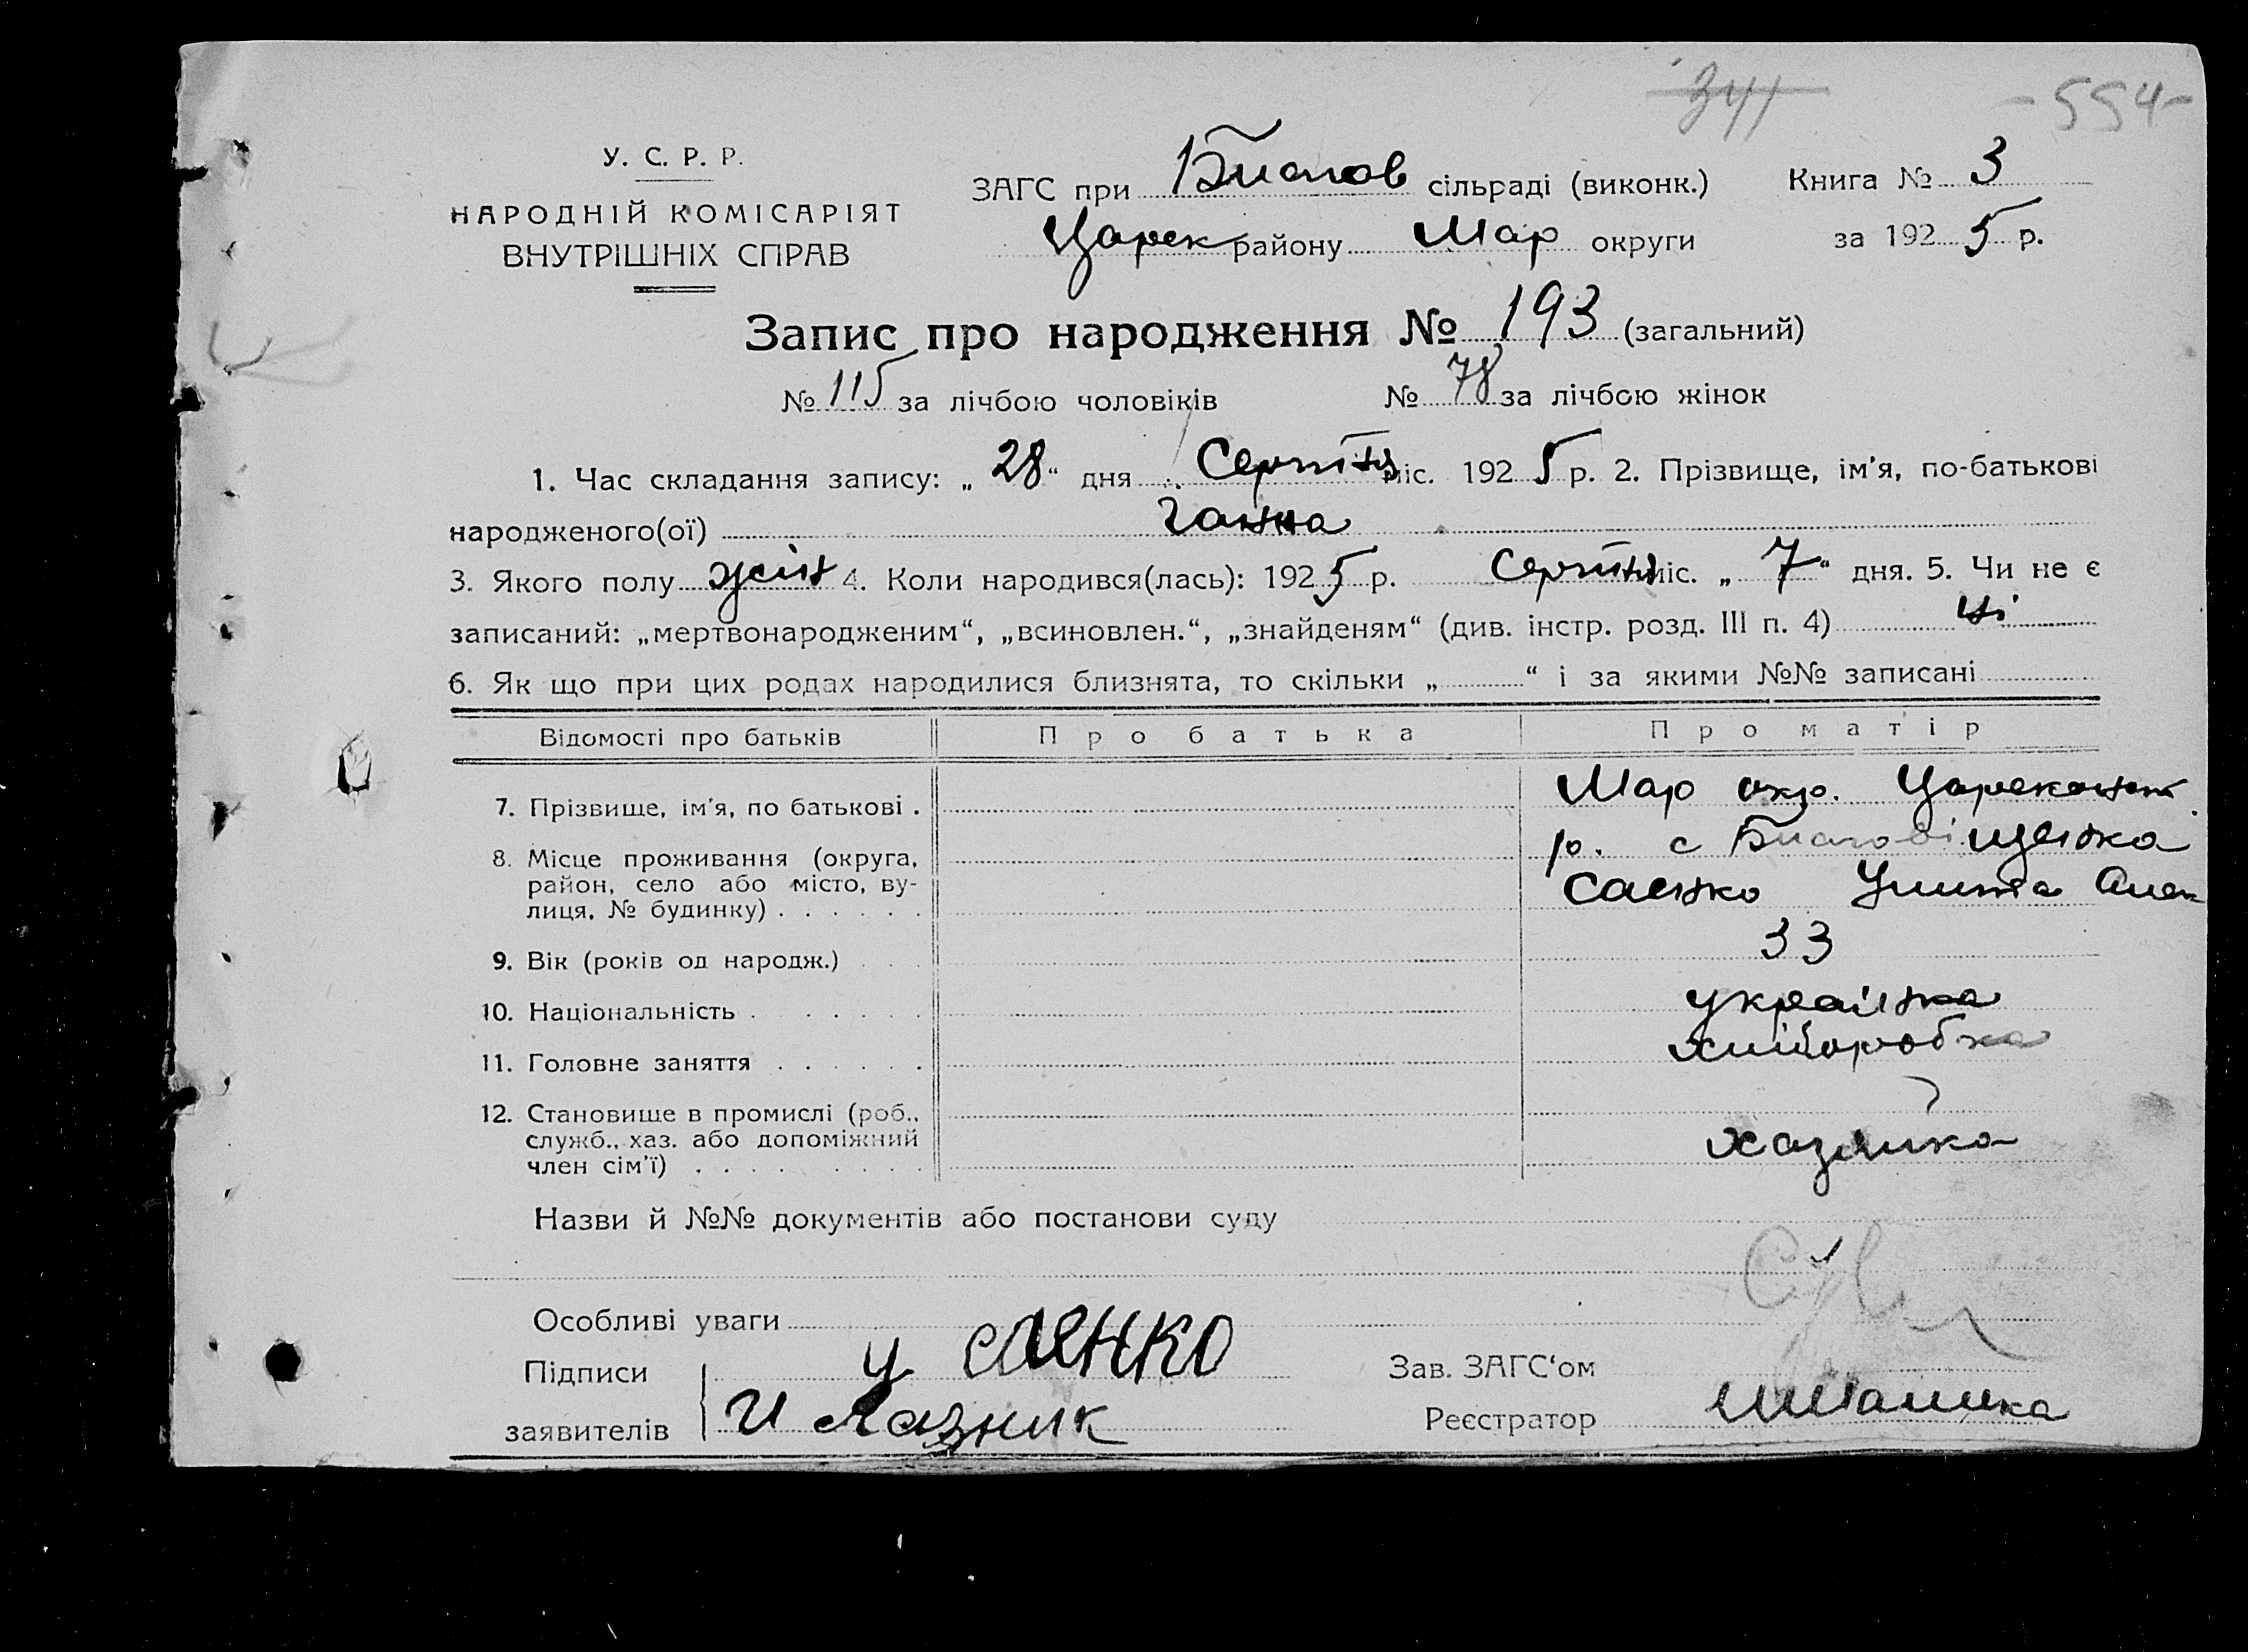 341 -554-
У. С. Р. Р.
НАРОДНІЙ КОМІСАРІЯТ
ВНУТРІШНІХ СПРАВ
ЗАГС при Благов сільраді (виконк.) Книга № 3
Царек району Мар округи за 1925 р.
Запис про народження № 193 (загальний)
№ 115 за лічбою чоловіків № 78 за лічбою жінок
1. Час складання запису: „28“ дня Серпня міс. 1925 р. 2. Прізвище, ім'я, по-батькові
народженого(ої) Ганна
3. Якого полу жін 4. Коли народився(лась): 1925 р. Серпня міс. „7“ дня. 5. Чи не є
записаний: „мертвонародженим“, „всиновлен.“, „знайденям“ (див. інстр. розд. III п. 4) ні
6. Як що при цих родах народилися близнята, то скільки „ “ і за якими №№ записані
Відомості про батьків Про батька Про матір
7. Прізвище, ім'я, по батькові . Мар окр. Царекон
8. Місце проживання (округа, р. с Благовіщенка
район, село або місто, ву-
лиця, № будинку) . . . . . . Саенко Улита Алек
9. Вік (років од народж.) . . . 33
10. Національність . . . . . . украінка
11. Головне заняття . . . . . . хліборобка
12. Становище в промислі (роб.,
служб., хаз. або допоміжний хазяйка
член сім'ї) . . . . . . . . .
Назви й №№ документів або постанови суду
Особливі уваги
Підписи у саенко Зав. ЗАГС'ом
заявителів И Лазник Реєстратор